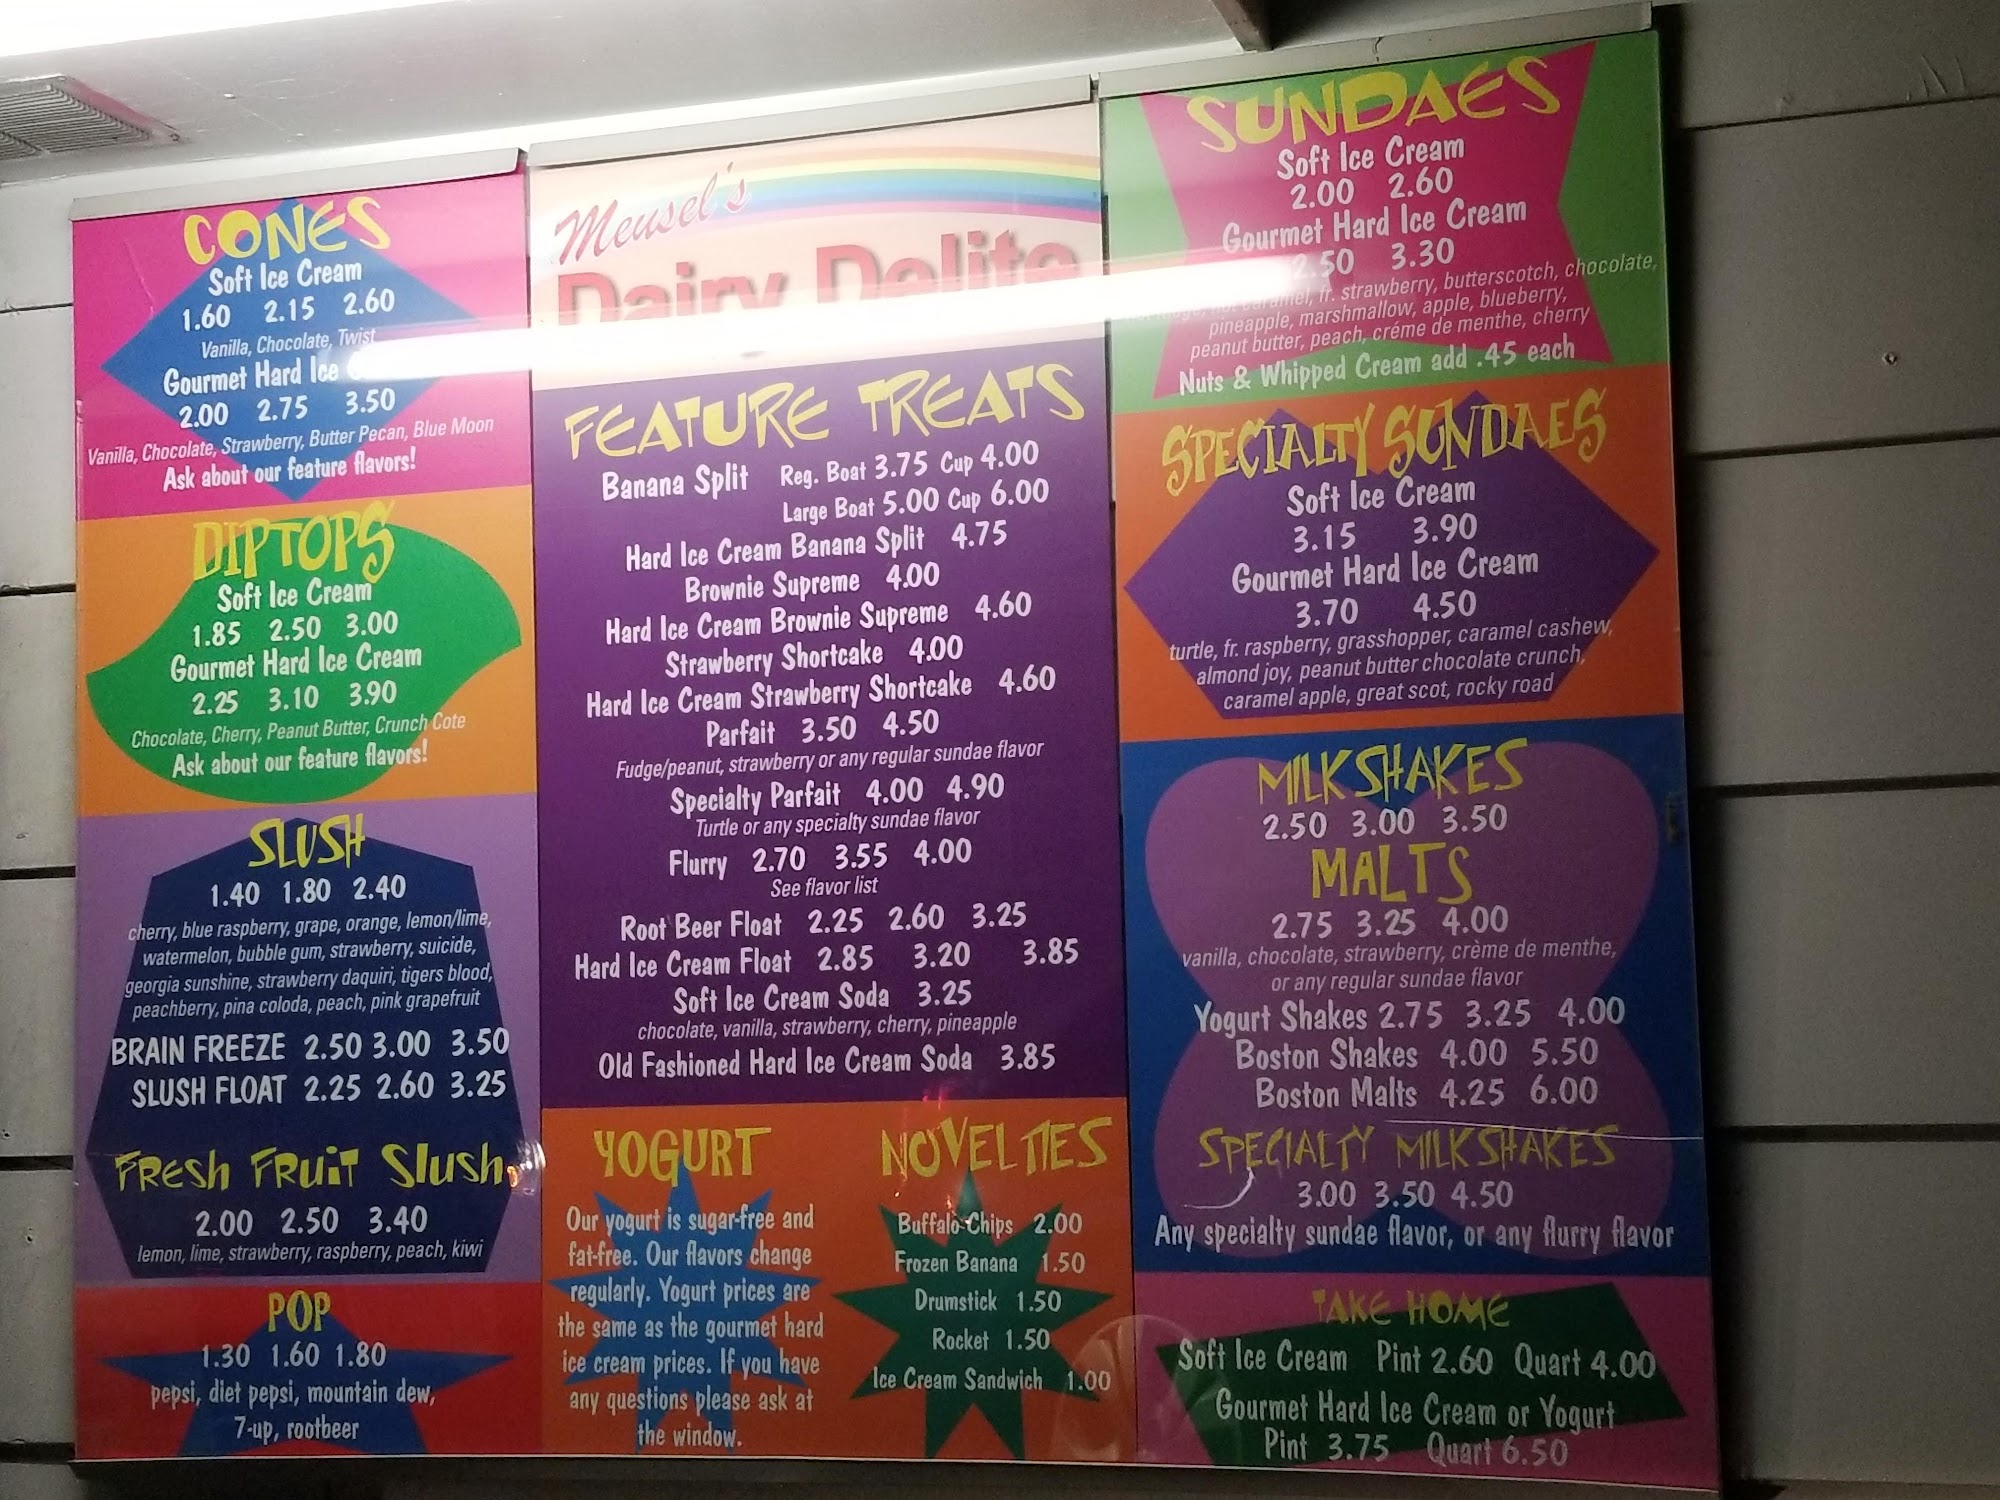 CONES
Soft Ice Cream
1.60 2.15 2.60
Vanilla, Chocolate, Twist
Gourmet Hard Ice
2.00 2.75 3.50
Vanilla, Chocolate, Strawberry, Butter Pecan, Blue Moon
Ask about our feature flavors!
DIPTOPS
Soft Ice Cream
1.85 2.50 3.00
Gourmet Hard Ice Cream
2.25 3.10 3.90
Chocolate, Cherry, Peanut Butter, Crunch Cote
Ask about our feature flavors!
SLUSH
1.40 1.80 2.40
cherry, blue raspberry, grape, orange, lemon/lime,
watermelon, bubble gum, strawberry, suicide,
georgia sunshine, strawberry daquiri, tigers blood,
peachberry, pina coloda, peach, pink grapefruit
BRAIN FREEZE 2.50 3.00 3.50
SLUSH FLOAT 2.25 2.60 3.25
FRESH FRUIT SLUSH
2.00 2.50 3.40
lemon, lime, strawberry, raspberry, peach, kiwi
POP
1.30 1.60 1.80
pepsi, diet pepsi, mountain dew,
7-up, rootbeer
Meusel's
Dairy Delite
FEATURE TREATS
Banana Split Reg. Boat 3.75 Cup 4.00
Large Boat 5.00 Cup 6.00
Hard Ice Cream Banana Split 4.75
Brownie Supreme 4.00
Hard Ice Cream Brownie Supreme 4.60
Strawberry Shortcake 4.00
Hard Ice Cream Strawberry Shortcake 4.60
Parfait 3.50 4.50
Fudge/peanut, strawberry or any regular sundae flavor
Specialty Parfait 4.00 4.90
Turtle or any specialty sundae flavor
Flurry 2.70 3.55 4.00
See flavor list
Root Beer Float 2.25 2.60 3.25
Hard Ice Cream Float 2.85 3.20 3.85
Soft Ice Cream Soda 3.25
chocolate, vanilla, strawberry, cherry, pineapple
Old Fashioned Hard Ice Cream Soda 3.85
YOGURT
Our yogurt is sugar-free and
fat-free. Our flavors change
regularly. Yogurt prices are
the same as the gourmet hard
ice cream prices. If you have
any questions please ask at
the window.
NOVELTIES
Buffalo Chips 2.00
Frozen Banana 1.50
Drumstick 1.50
Rocket 1.50
Ice Cream Sandwich 1.00
SUNDAES
Soft Ice Cream
2.00 2.60
Gourmet Hard Ice Cream
2.50 3.30
caramel, fr. strawberry, butterscotch, chocolate,
pineapple, marshmallow, apple, blueberry,
peanut butter, peach, créme de menthe, cherry
Nuts & Whipped Cream add .45 each
SPECIALTY SUNDAES
Soft Ice Cream
3.15 3.90
Gourmet Hard Ice Cream
3.70 4.50
turtle, fr. raspberry, grasshopper, caramel cashew,
almond joy, peanut butter chocolate crunch,
caramel apple, great scot, rocky road
MILKSHAKES
2.50 3.00 3.50
MALTS
2.75 3.25 4.00
vanilla, chocolate, strawberry, crème de menthe,
or any regular sundae flavor
Yogurt Shakes 2.75 3.25 4.00
Boston Shakes 4.00 5.50
Boston Malts 4.25 6.00
SPECIALTY MILKSHAKES
3.00 3.50 4.50
Any specialty sundae flavor, or any flurry flavor
TAKE HOME
Soft Ice Cream Pint 2.60 Quart 4.00
Gourmet Hard Ice Cream or Yogurt
Pint 3.75 Quart 6.50